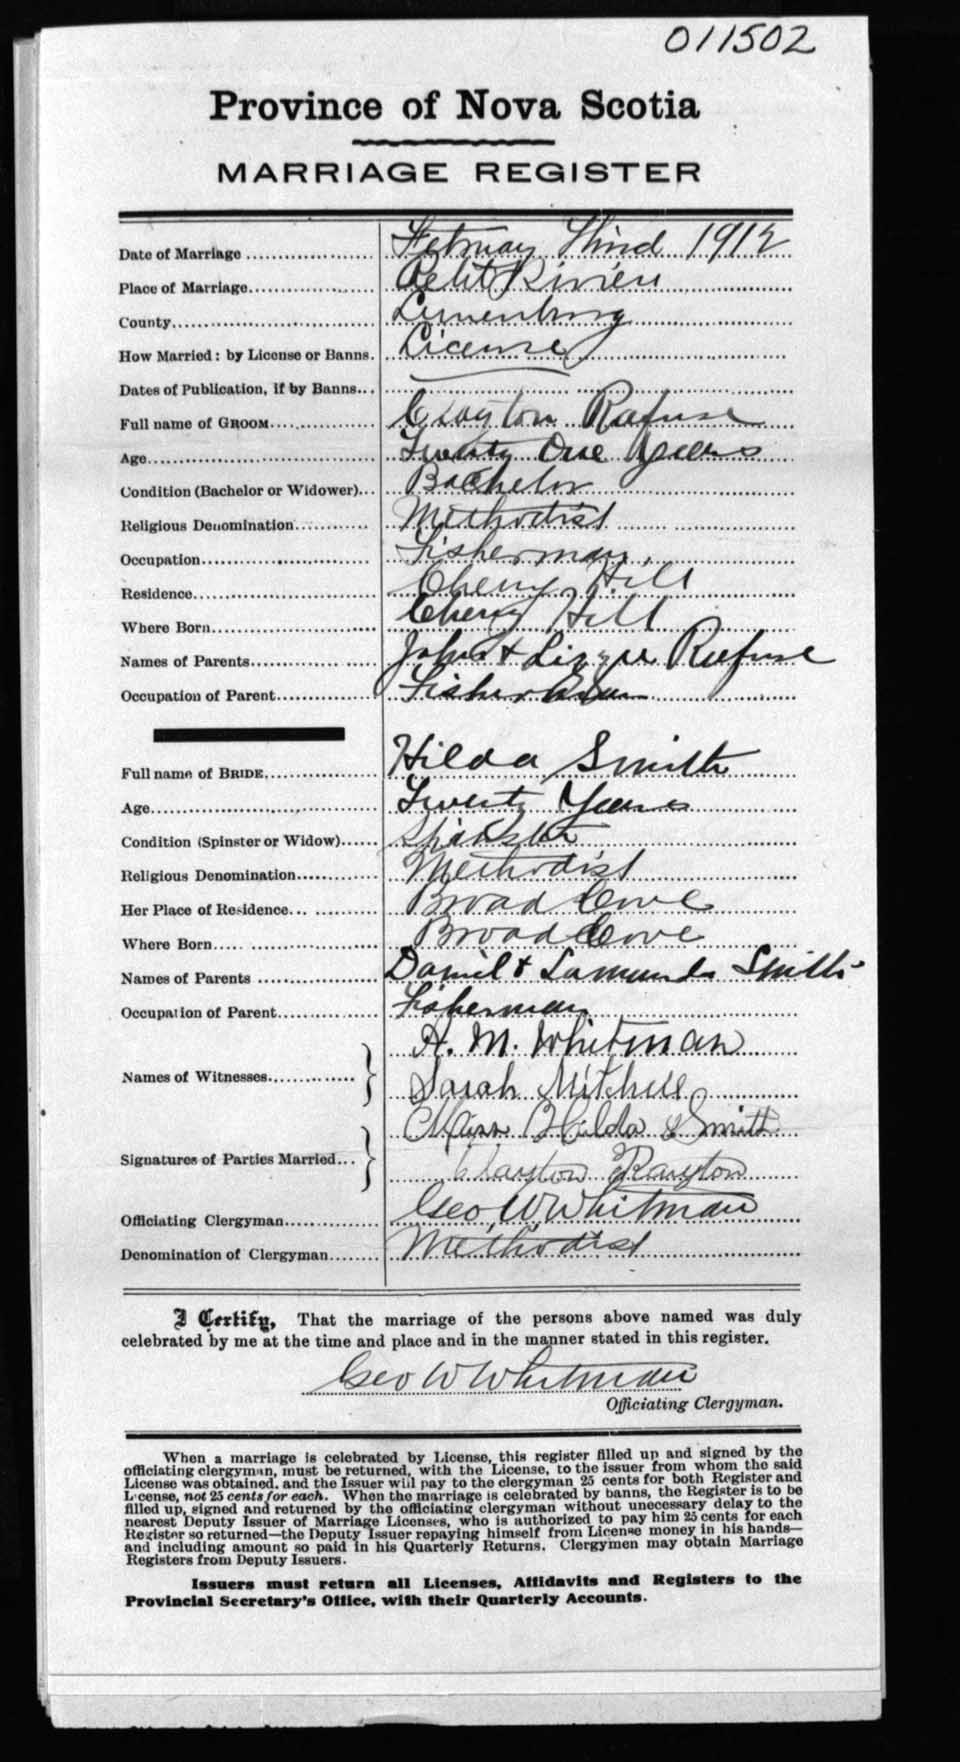 011502
Province of Nova Scotia
MARRIAGE REGISTER
Date of Marriage February Third 1912
Place of Marriage Petit Riviere
County Lunenburg
How Married: by License or Banns. License
Dates of Publication, if by Banns
Full name of GROOM Clayton Rafuse
Age Twenty One Years
Condition (Bachelor or Widower) Bachelor
Religious Denomination Methodist
Occupation Fisherman
Residence Cherry Hill
Where Born Cherry Hill
Names of Parents John & Lizzie Rafuse
Occupation of Parent Fisherman
Full name of BRIDE Hilda Smith
Age Twenty Years
Condition (Spinster or Widow) Spinster
Religious Denomination Methodist
Her Place of Residence Broad Cove
Where Born Broad Cove
Names of Parents Daniel & Smith
Occupation of Parent Fisherman
A. M. Whitman
Names of Witnesses
Sarah Mitchell
Miss Hilda Smith
Signatures of Parties Married
Clayton
Officiating Clergyman Geo W Whitman
Denomination of Clergyman Methodist
I Certify, That the marriage of the persons above named was duly
celebrated by me at the time and place and in the manner stated in this register.
Geo W Whitman
Officiating Clergyman.
When a marriage is celebrated by License, this register filled up and signed by the
officiating clergyman, must be returned, with the License, to the issuer from whom the said
License was obtained, and the Issuer will pay to the clergyman 25 cents for both Register and
License, not 25 cents for each. When the marriage is celebrated by banns, the Register is to be
filled up, signed and returned by the officiating clergyman without unecessary delay to the
nearest Deputy Issuer of Marriage Licenses, who is authorized to pay him 25 cents for each
Register so returned—the Deputy Issuer repaying himself from License money in his hands—
and including amount so paid in his Quarterly Returns. Clergymen may obtain Marriage
Registers from Deputy Issuers.
Issuers must return all Licenses, Affidavits and Registers to the
Provincial Secretary's Office, with their Quarterly Accounts.